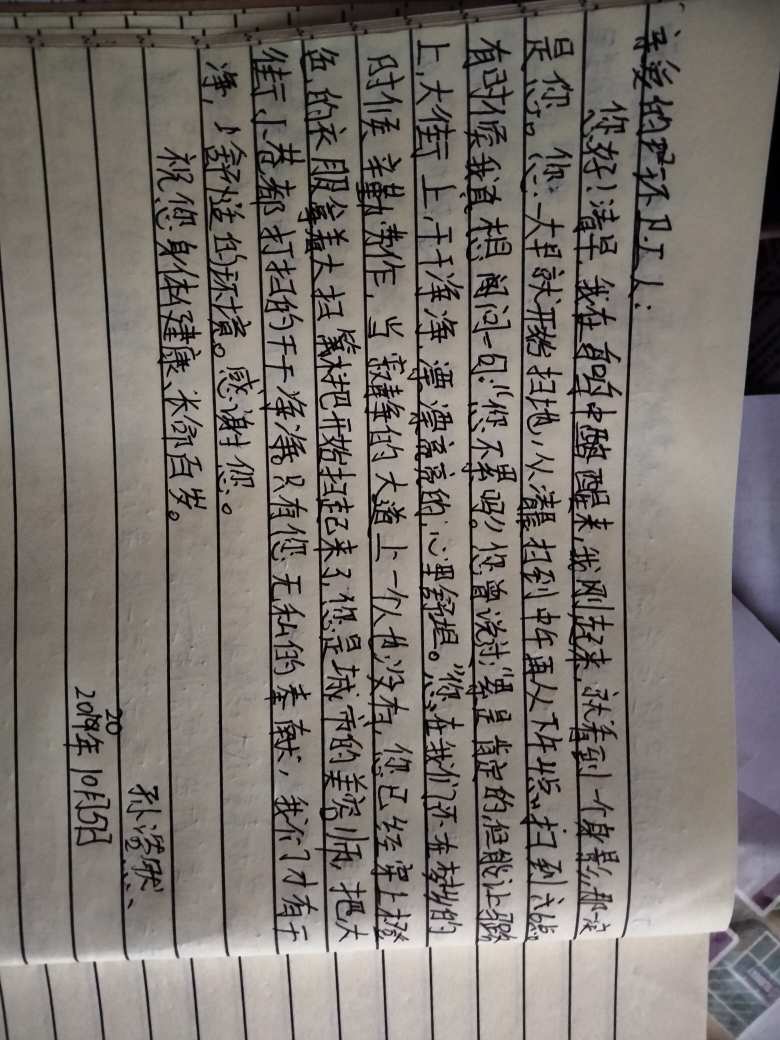 亲爱的环卫工人：
您好！清早，我在自的中醒来，我刚起来，就看到一个身影，那一定
是您。您一大早就开始扫地，从清晨扫到中午再从下午4点扫到六点
有时候我真想问一句："您不累吗？"您曾说过："累是肯定的，但能让马路
上，大街上，干干净净漂漂亮亮的，心里舒坦。"您在我们还在梦乡的
时候辛勤劳作，当寂静的大道上一个人也没有，您已经穿上橙
色的衣服拿着大扫把开始扫起来了，您是城市的美容师，把大
街小巷都打扫的干干净净。只有您无私的奉献，我们才有干
净，舒适的环境。感谢您。
祝您身体健康、长命百岁。
孙浩然
2020年10月5日